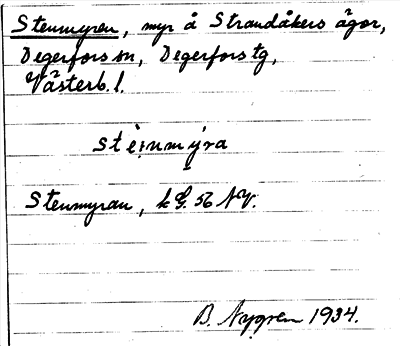 Stenmyren, myr å Strandåkers ägor,
Degerfors sn, Degerfors tg,
Västerb. l.
stè̩nmýra
Stenmyran, k G. 56 NV.
B. Nygren 1934.